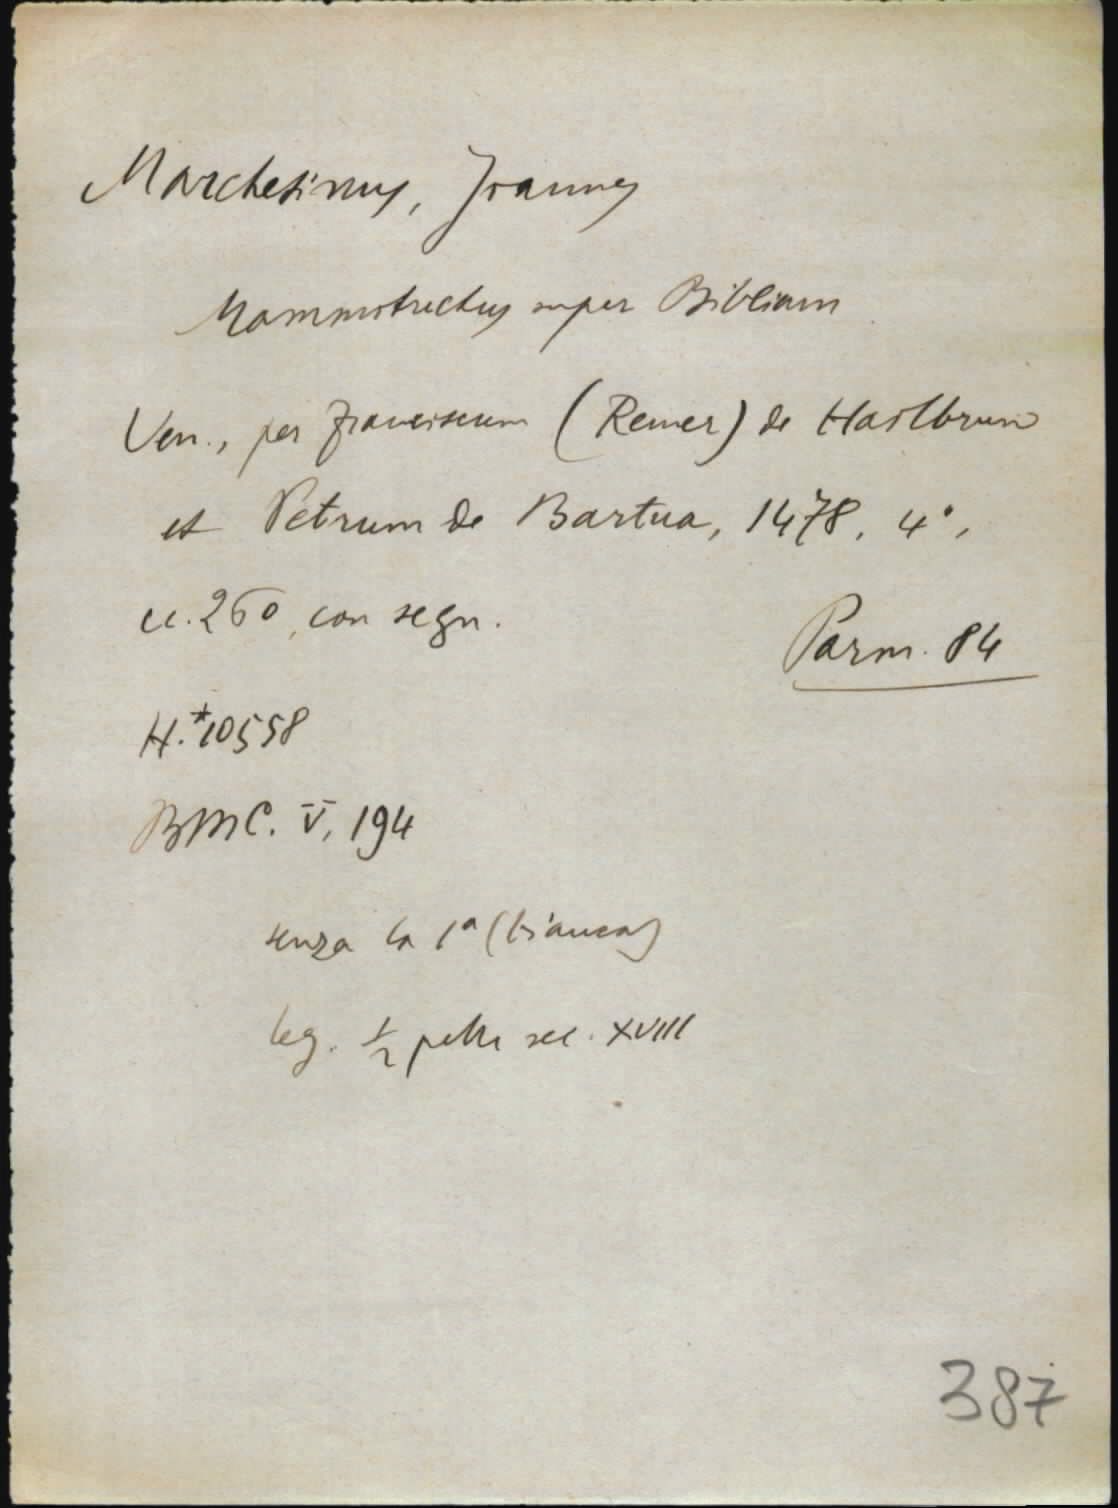 Marchesinus, Joannes
Mammotrectus super Bibliam
Ven., per Franciscum (Renner) de Hailbrun
et Petrum de Bartua, 1478, 4°,
cc. 260, con segn.
Parm. 84
H.*10558
BMC. V, 194
senza la 1ª (bianca)
leg. ½ pelle sec. XVIII
387